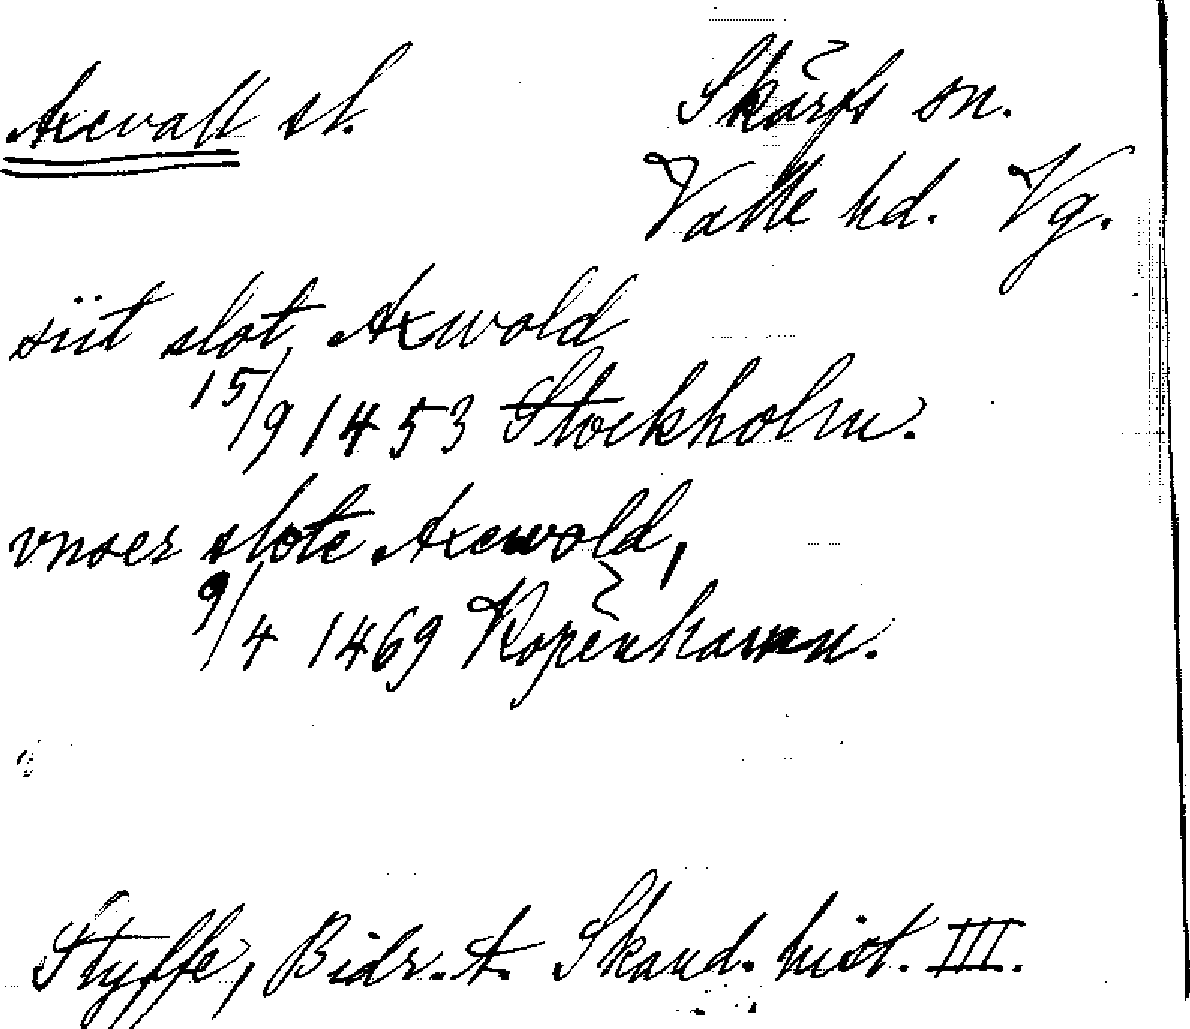 Axevall sl. Skärfs sn.
Valle hd. Vg.
siit slot Axwold
15/9 1453 Stockholm.
vnser slote Axewold,
9/4 1469 Kopenhauen.
Styffe, Bidr. t. Skand. hist. III.